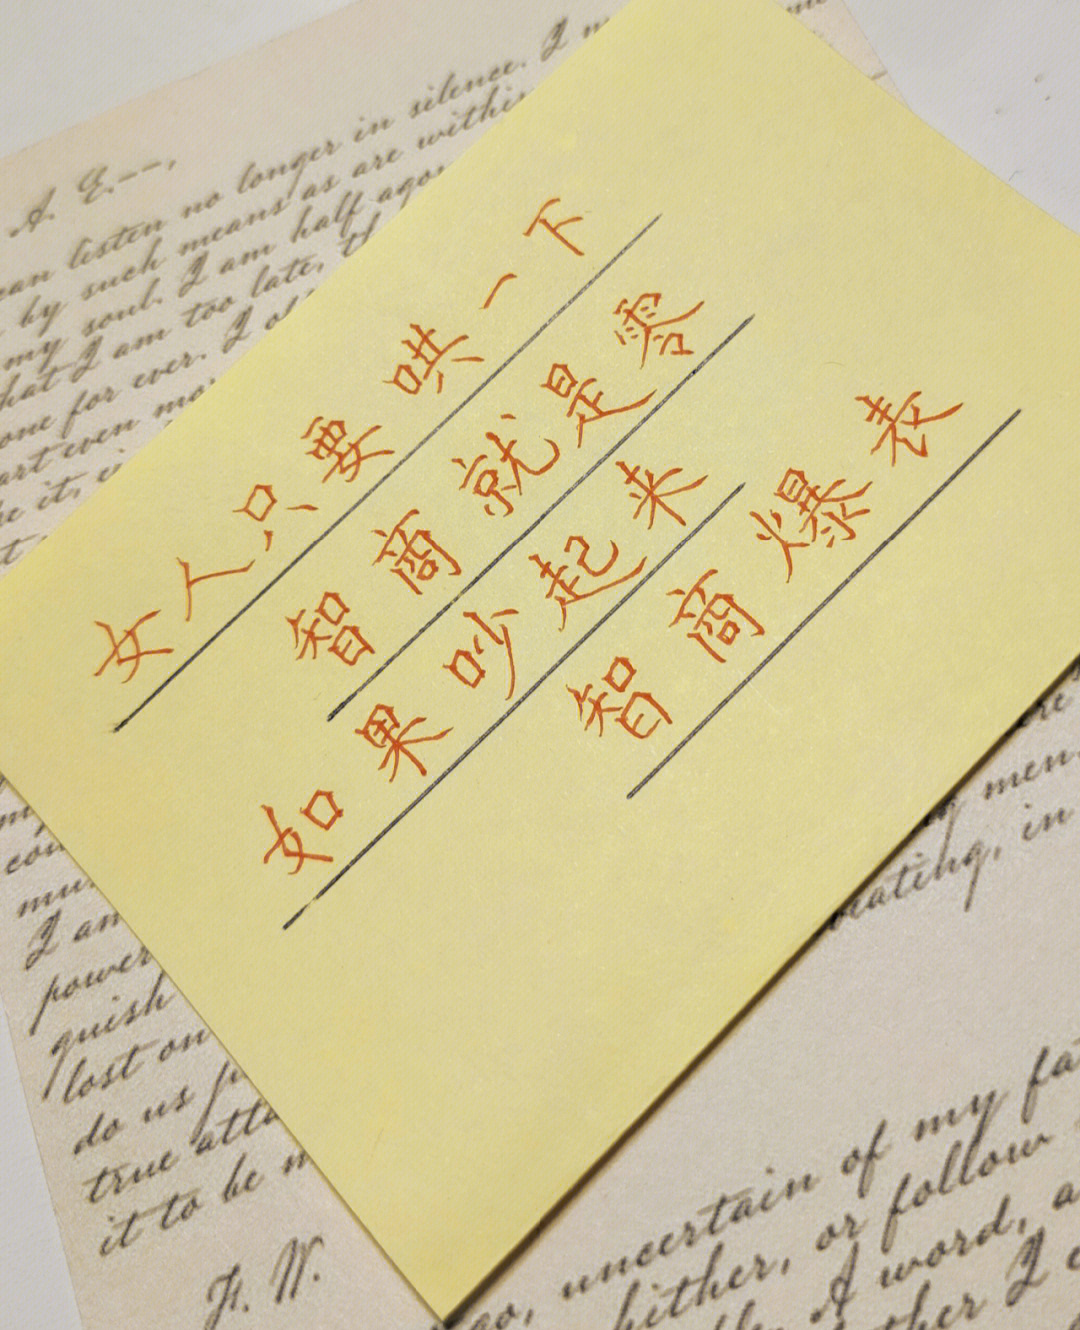 A. E.--,
can listen no longer in silence. I m
by such means as are within
my soul. I am half ago
hat I am too late, th
one for ever. I of
art even mo
女人只要哄一下
智商就是零
如果吵起来
智商爆表
I am
power
guish
lost on
do us ju
true atta
it to be m
F. W.
men.
rating, in
go, uncertain of my fa
hither, or follow
A word, a
ther I e